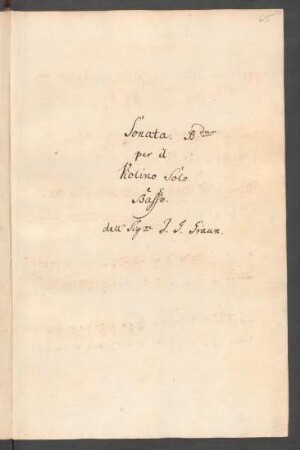 65
Sonata. B dur
per il
Violino Solo.
e
Basso.
dell Sigr. J. G. Graun.